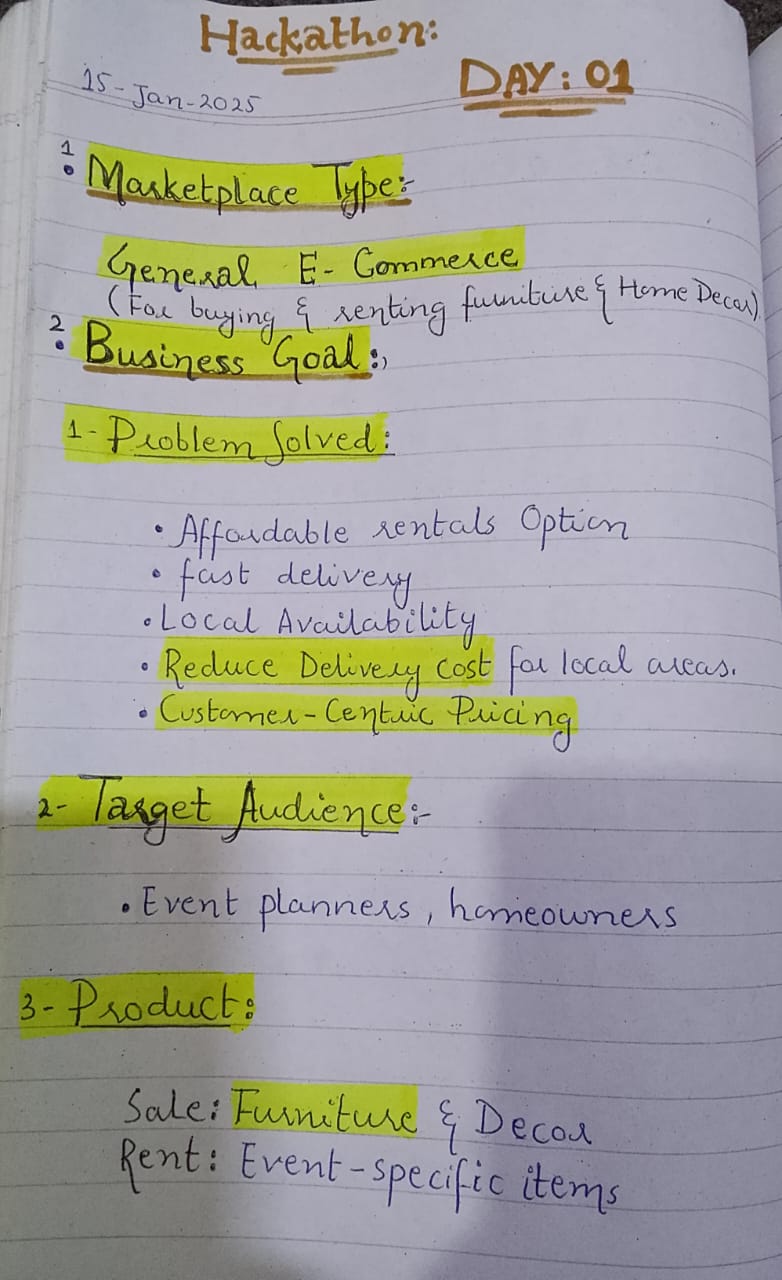 Hackathon:
DAY: 01
15-Jan-2025
1. Marketplace Type:-
General E-Commerce
(For buying & renting furniture & Home Decor)
2. Business Goal:,
1- Problem Solved:
• Affordable rentals Option
• fast delivery
• Local Availability
• Reduce Delivery cost for local areas.
• Customer-Centric Pricing
2- Target Audience:-
• Event planners, homeowners
3- Product:
Sale: Furniture & Decor
Rent: Event-specific items